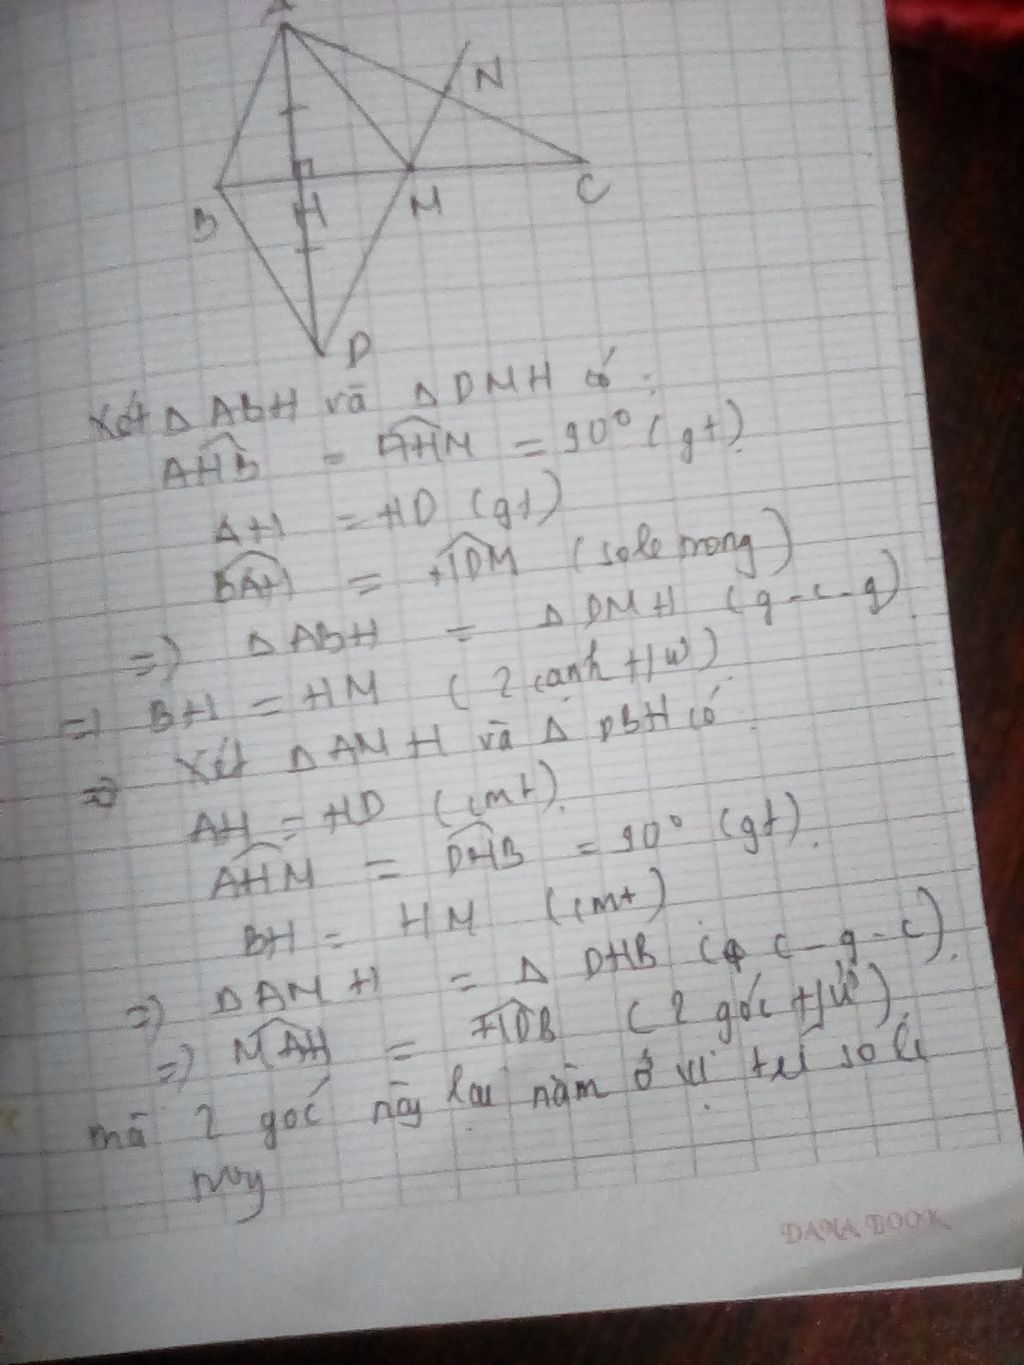 A
N
B
H
M
C
D
Xét Δ ABH và Δ DMH có :
AHB = DHM = 90° (gt).
AH = HD (gt)
BAH = HDM (sole trong)
=> Δ ABH = Δ DMH (g-c-g).
=> BH = HM (2 cạnh tư)
=> Xét Δ AMH và Δ DBH có
AH = HD (cmt).
AHM = DHB = 90° (gt).
BH = HM (cmt)
=> Δ AMH = Δ DHB (c-g-c).
=> MAH = HDB (2 góc tư)
mà 2 góc này lại nằm ở vị trí so le
trong
DANA BOOK